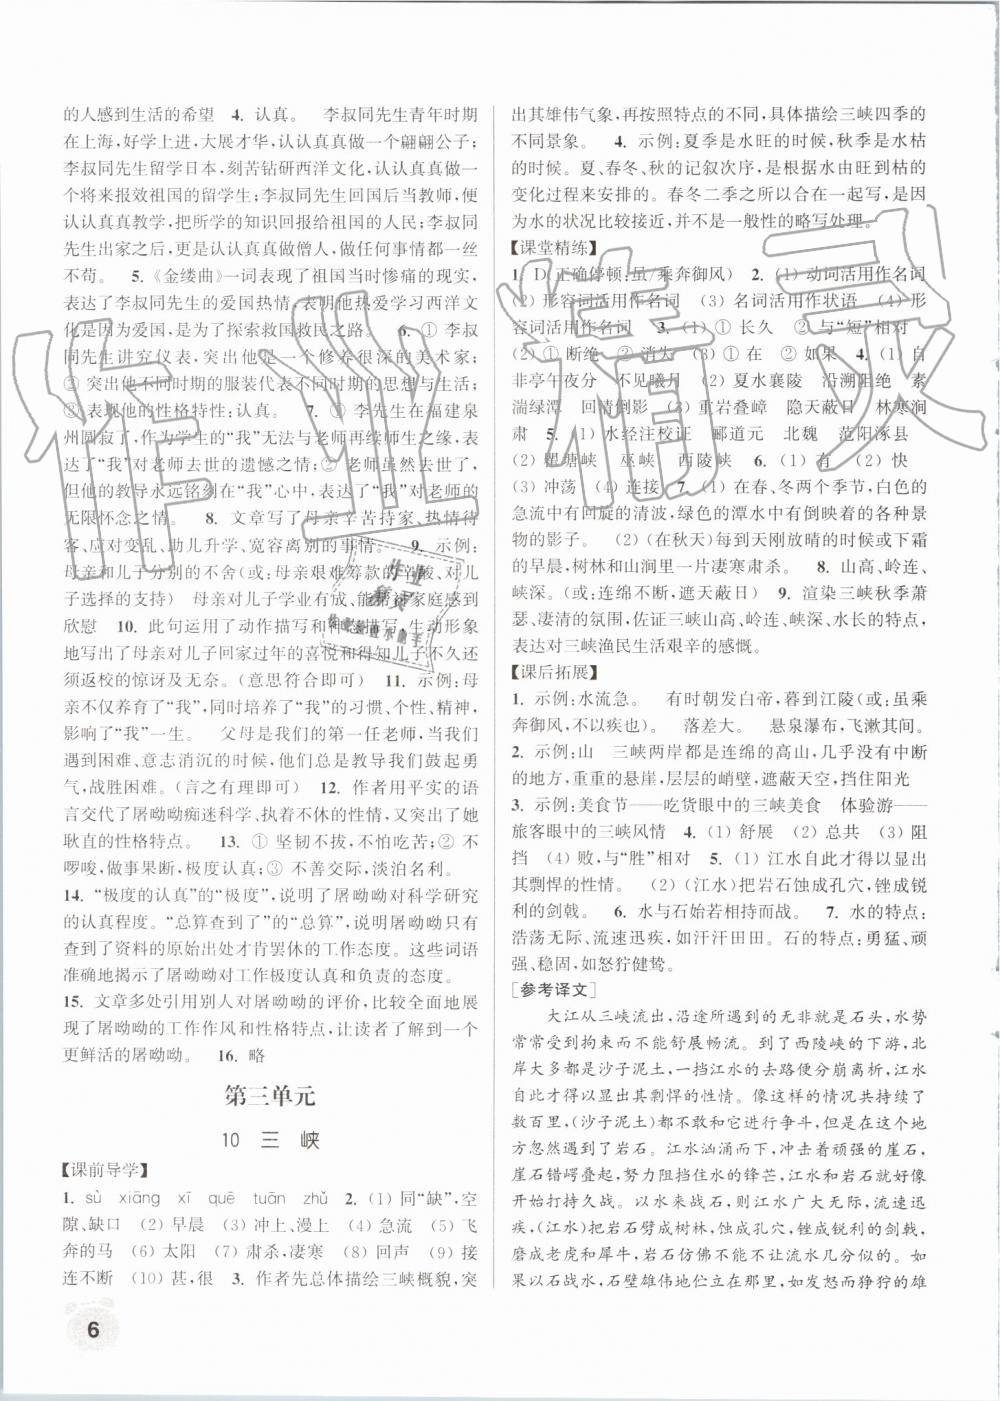 的人感到生活的希望　4. 认真。　李叔同先生青年时期
在上海,好学上进,大展才华,认认真真做一个翩翩公子;
李叔同先生留学日本,刻苦钻研西洋文化,认认真真做
一个将来报效祖国的留学生;李叔同先生回国后当教师,便
认认真真教学,把所学的知识回报给祖国的人民;李叔同
先生出家之后,更是认认真真做僧人,做任何事情都一丝
不苟。　5.《金缕曲》一词表现了祖国当时惨痛的现实,
表达了李叔同先生的爱国热情,表明他热爱学习西洋文
化是因为爱国,是为了探索救国救民之路。　6. ① 李叔
同先生讲究仪表,突出他是一个修养很深的美术家;
② 突出他不同时期的服装代表不同时期的思想与生活;
③ 表现他的性格特性:认真。　7. ① 李先生在福建泉
州圆寂了,作为学生的“我”无法与老师再续师生之缘,表
达了“我”对老师去世的遗憾之情;② 老师虽然去世了,
但他的教导永远铭刻在“我”心中,表达了“我”对老师的
无限怀念之情。　8. 文章写了母亲辛苦持家、热情待
客、应对变乱、助儿升学、宽容离别的事情。　9. 示例:
母亲和儿子分别的不舍(或:母亲艰难筹款的辛酸、对儿
子选择的支持)　母亲对儿子学业有成、能帮衬家庭感到
欣慰　10. 此句运用了动作描写和神态描写,生动形象
地写出了母亲对儿子回家过年的喜悦和得知儿子过年还
须返校的惊讶及无奈。(意思符合即可)　11. 示例:母
亲不仅养育了“我”,其优秀品质对“我”的习惯、个性、精神,
影响了“我”一生。　父母是我们的第一任老师,当我们
遇到困难、意志消沉的时候,他们总是鼓励我们鼓起勇
气,战胜困难。(言之有理即可)　12. 作者用平实的语
言交代了屠呦呦痴迷科学、执着不休的性情,又突出了她
耿直的性格特点。　13. ① 坚韧不拔,不怕吃苦;② 不
啰唆,做事果断,极度认真;③ 不善交际,淡泊名利。
14. “极度的认真”的“极度”,说明了屠呦呦对科学研究
的认真程度。“总算查到了”的“总算”,说明屠呦呦只有
查到了资料的原始出处才肯罢休的工作态度。这些词语
准确地揭示了屠呦呦对工作极度认真和负责的态度。
15. 文章多处引用别人对屠呦呦的评价,比较全面地展
现了屠呦呦的工作作风和性格特点,让读者了解了一个
更鲜活的屠呦呦。　16. 略
第三单元
10　三　峡
【课前导学】
1. sù　xiāng　xī　quē　tuān　zhǔ　2. (1) 同“缺”,空
隙、缺口　(2) 早晨　(3) 冲上、漫上　(4) 急流　(5) 飞
奔的马　(6) 太阳　(7) 肃杀、凄寒　(8) 回声　(9) 接
连不断　(10) 甚,很　3. 作者先总体描绘三峡概貌,突
出其雄伟气象,再按照特点的不同,具体描绘三峡四季的
不同景象。　4. 示例:夏季是水旺的时候,秋季是水枯
的时候。夏、春冬、秋的记叙次序,是根据水由旺到枯的
变化过程来安排的。春冬二季之所以合在一起写,是因
为水的状况比较接近,并不是一般性的略写处理。
【课堂精练】
1. D(正确停顿:虽/乘奔御风)　2. (1) 动词活用作名词
(2) 形容词活用作名词　(3) 名词活用作状语　(4) 形
容词活用作名词　3. (1) ① 长久　② 与“短”相对
(2) ① 断绝　② 消失　(3) ① 在　② 如果　4. (1) 自
非亭午夜分　不见曦月　(2) 夏水襄陵　沿溯阻绝　素
湍绿潭　回清倒影　(3) 重岩叠嶂　隐天蔽日　林寒涧
肃　5. (1) 水经注校证　郦道元　北魏　范阳涿县
(2) 瞿塘峡　巫峡　西陵峡　6. (1) 有　(2) 快
(3) 冲荡　(4) 连接　7. (1) 在春、冬两个季节,白色的
急流中有回旋的清波,绿色的潭水中倒映着的各种景
物的影子。　(2) (在秋天)每到天刚放晴的时候或下霜
的早晨,树林和山涧里一片凄寒肃杀。　8. 山高、岭连、
峡深。(或:连绵不断,遮天蔽日)　9. 渲染三峡秋季萧
瑟、凄清的氛围,佐证三峡山高、岭连、峡深、水长的特点,
表达对三峡渔民生活艰辛的感慨。
【课后拓展】
1. 示例:水流急。　有时朝发白帝,暮到江陵(或:虽乘
奔御风,不以疾也)。　落差大。　悬泉瀑布,飞漱其间。
2. 示例:山　三峡两岸都是连绵的高山,几乎没有中断
的地方,重重的悬崖,层层的峭壁,遮蔽天空,挡住阳光
3. 示例:美食节——吃货眼中的三峡美食　体验游——
旅客眼中的三峡风情　4. (1) 舒展　(2) 总共　(3) 阻
挡　(4) 败,与“胜”相对　5. (1) 江水自此才得以显出
其剽悍的性情。　(2) (江水)把岩石蚀成孔穴,锉成锐
利的剑戟。　6. 水与石始若相持而战。　7. 水的特点:
浩荡无际、流速迅疾,如汗汗田田。石的特点:勇猛、顽
强、稳固,如怒狞健鸷。
[参考译文]
大江从三峡流出,沿途所遇到的无非就是石头,水势
常常受到拘束而不能舒展畅流。到了西陵峡的下游,北
岸大多是沙子泥土,一挡江水的去路便分崩离析,江水
才得以显出其剽悍的性情。像这样的情况共持续了
数百里,(沙子泥土)都不敢和它进行争斗,但是在这个地
方忽然遇到了岩石。江水汹涌奔腾,冲击着崖石,
崖石错崿叠起,努力抵挡水的锋芒,江水和岩石就好像
开始打持久战。以水来战石,则江水广大无际,流速迅
疾,(江水)把岩石劈成树林,蚀成孔穴,锉成锐利的剑戟,
磨成老虎和犀牛,岩石仿佛不能不让流水几分似的。而
如果以石战水,石壁雄伟地伫立在那里,如发怒而狰狞的雄
6
作业精灵